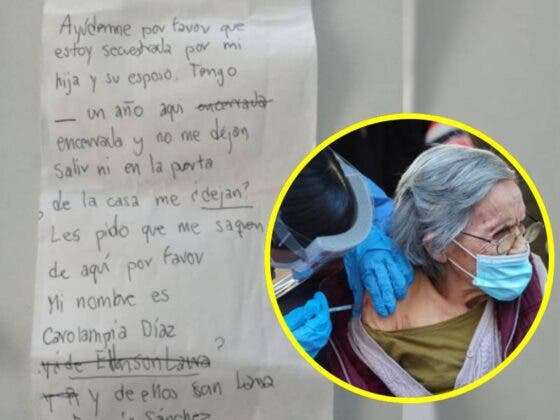 Ayúdenme por favor que
estoy secuestrada por mi
hija y su esposo. Tengo
_ un año aqui encerrada
encerrada y no me dejan
Salir ni en la puerta
de la casa me ¿dejan?
Les pido que me saquen
de aquí por favor
Mi nombre es
Carolampia Díaz
?
y de ellos son Lana
Sánchez